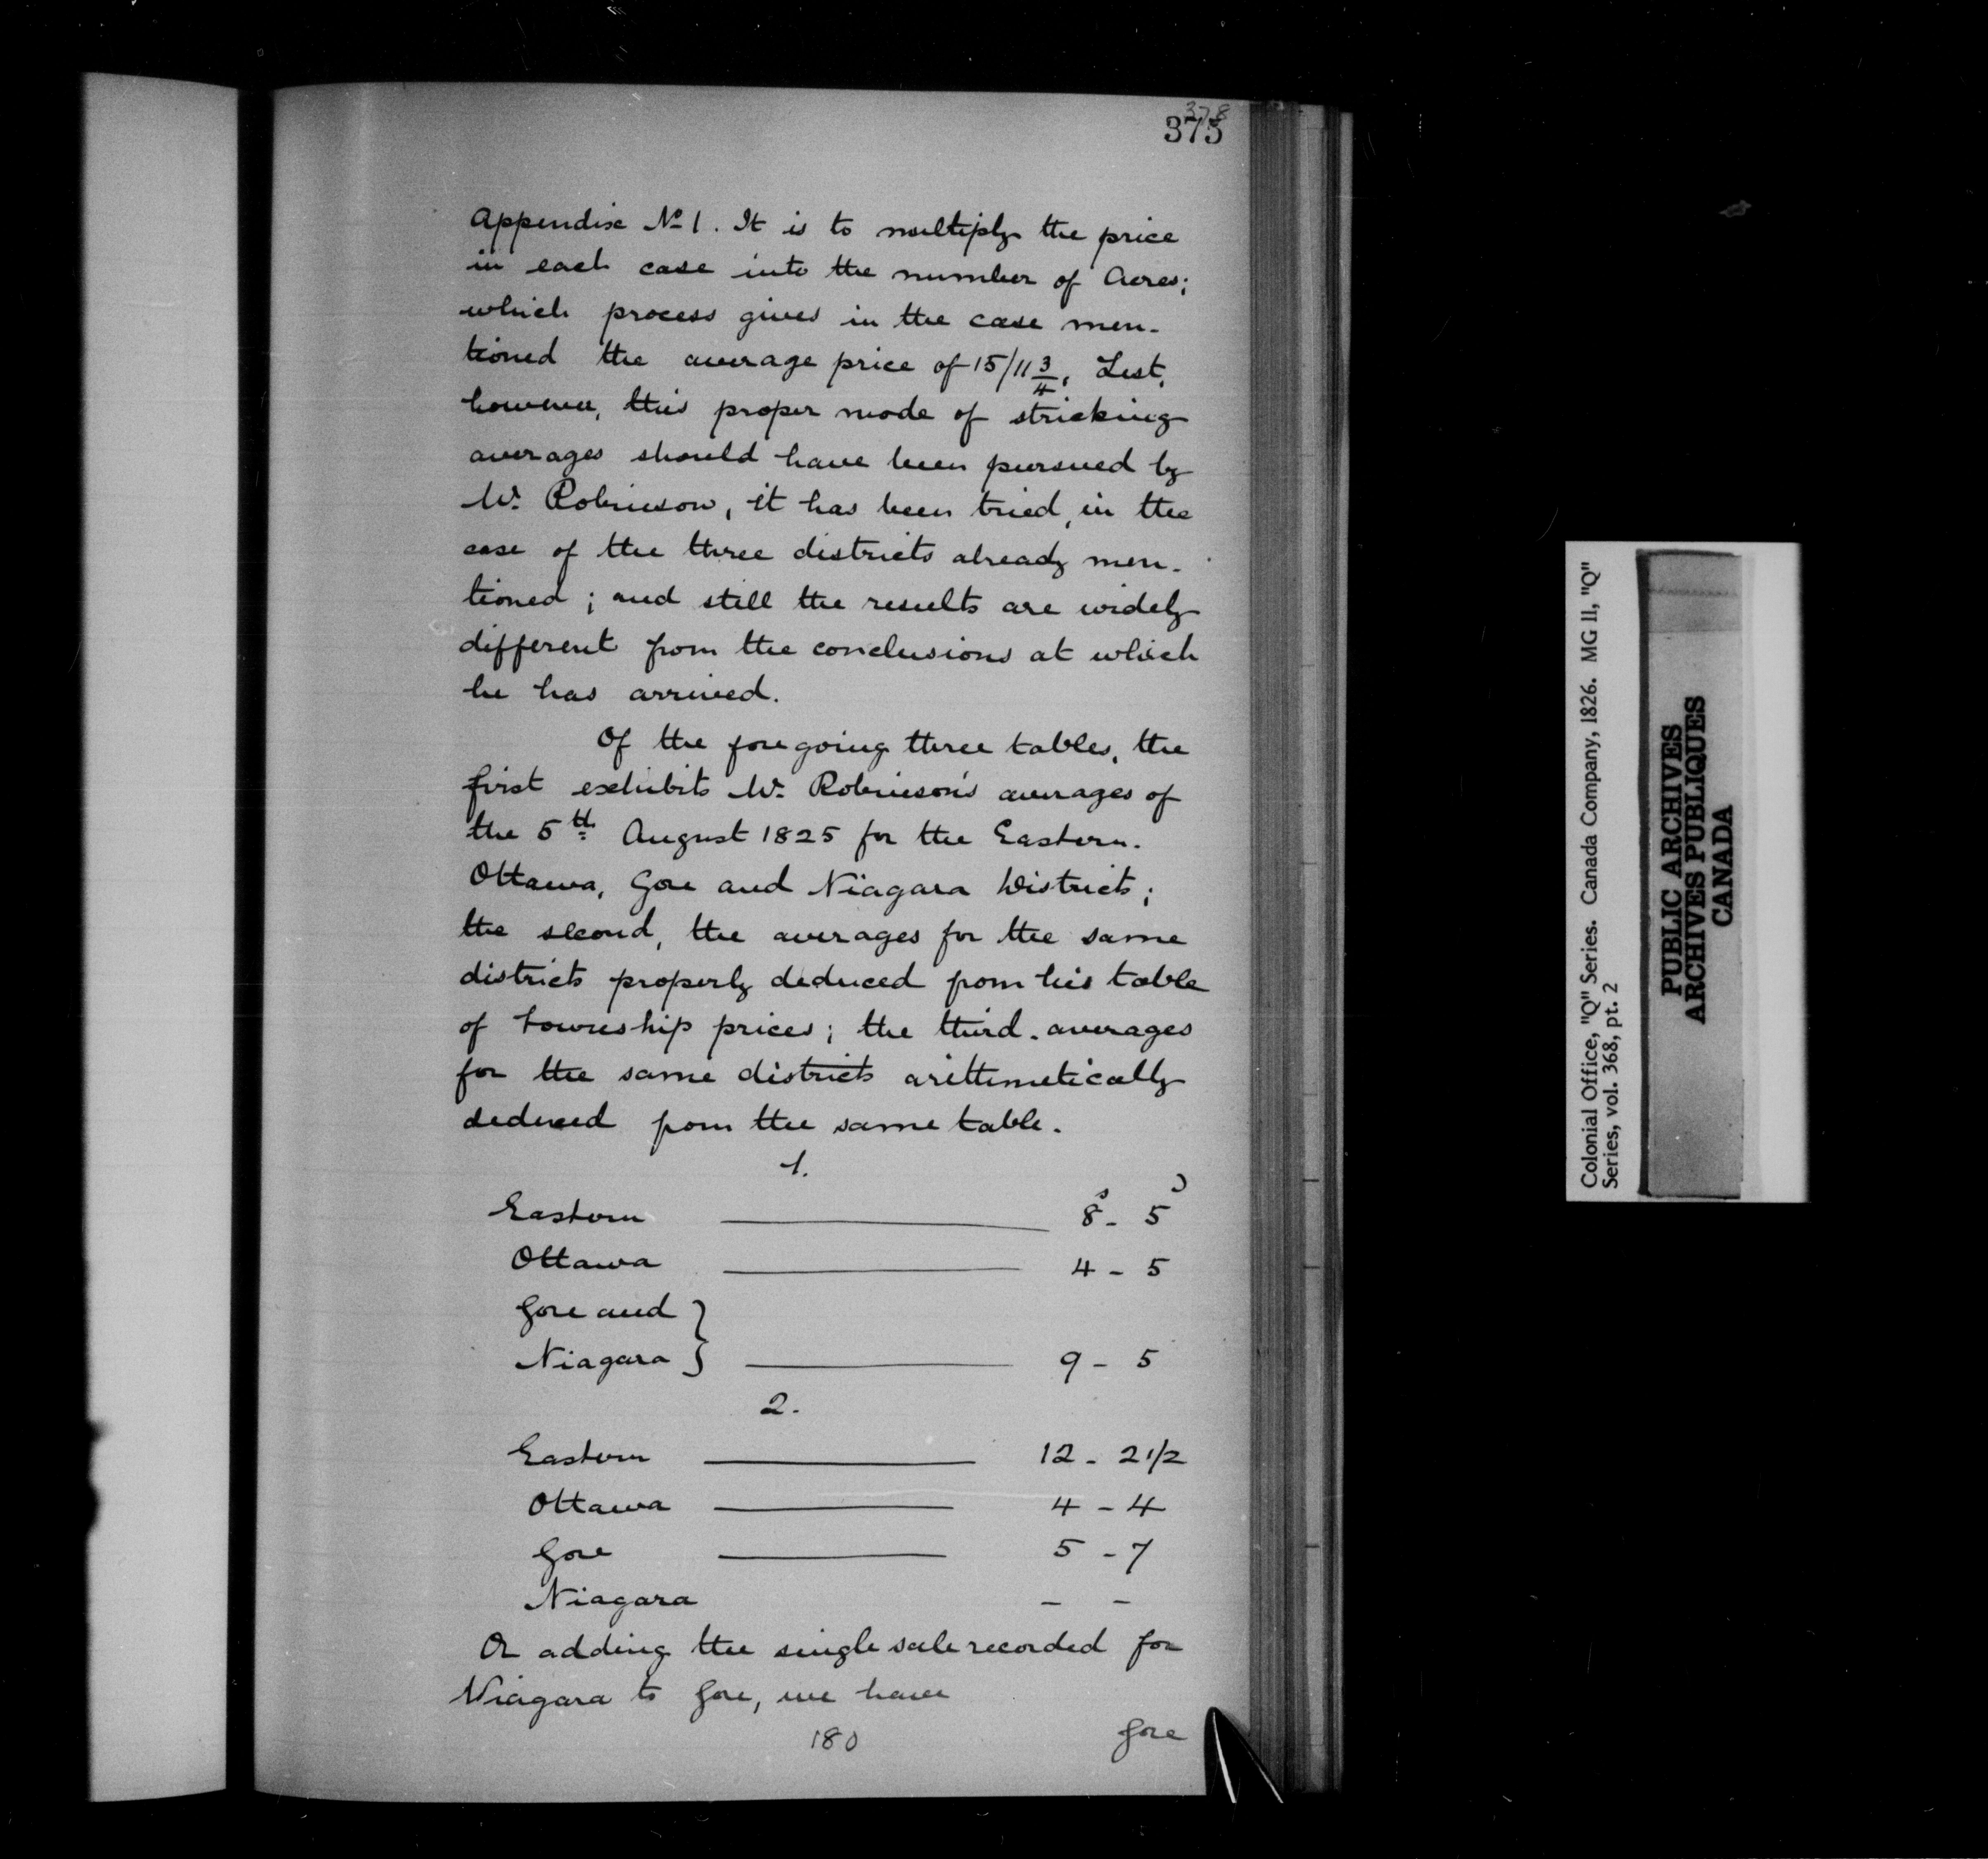 378
375
Appendix No 1. It is to multiply the price
in each case into the number of Acres;
which process gives in the case men-
tioned the average price of 15/11 3/4. Lest,
however, this proper mode of stricking
averages should have been pursued by
Mr. Robinson, it has been tried, in the
case of the three districts already men-
tioned; and still the results are widely
different from the conclusions at which
he has arrived.
Of the foregoing three tables, the
first exhibits Mr. Robinson's averages of
the 5th August 1825 for the Eastern.
Ottawa, Gore and Niagara Districts;
the second, the averages for the same
districts properly deduced from his table
of township prices; the third. averages
for the same districts arithmetically
deduced from the same table.
1.
s D
Eastern ——— 8 - 5
Ottawa ——— 4 - 5
Gore and }
Niagara } ——— 9 - 5
2.
Eastern ——— 12 - 2 1/2
Ottawa ——— 4 - 4
Gore ——— 5 - 7
Niagara - -
Or adding the single sale recorded for
Niagara to Gore, we have
180 Gore
Colonial Office, "Q" Series. Canada Company, 1826. MG 11, "Q"
Series, vol. 368, pt. 2
PUBLIC ARCHIVES
ARCHIVES PUBLIQUES
CANADA